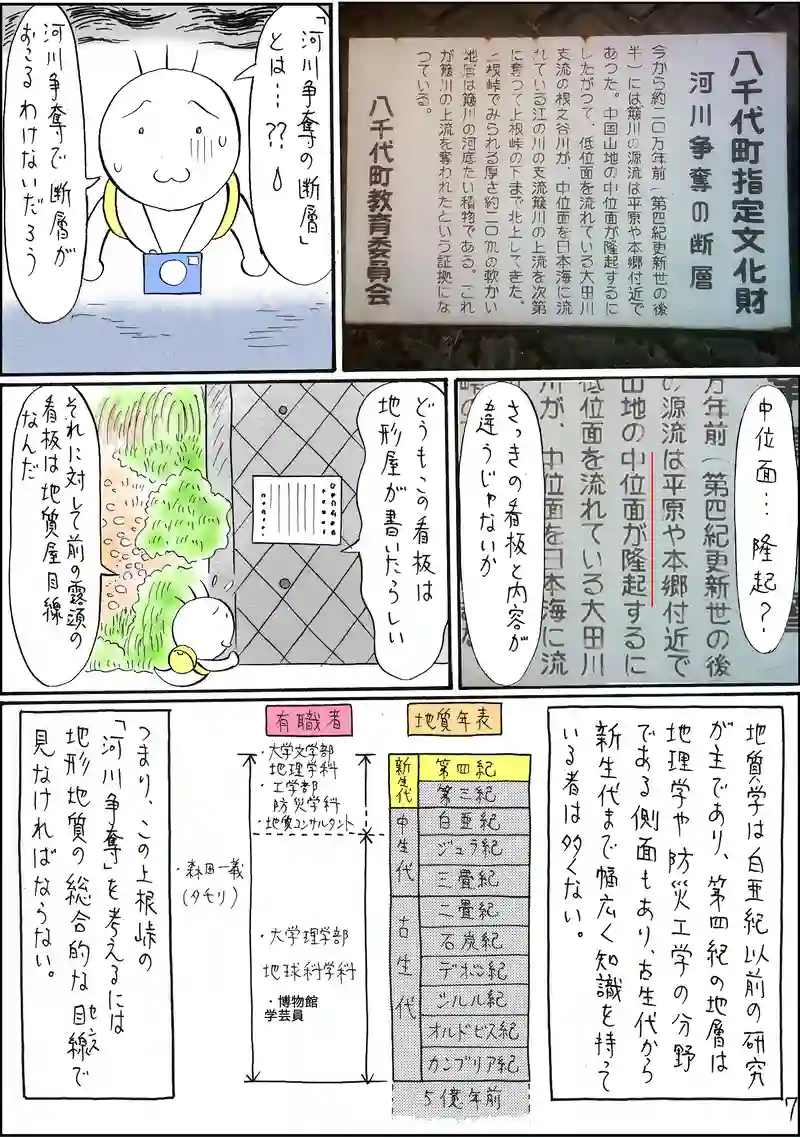 八千代町指定文化財
河川争奪の断層
今から約二〇万年前(第四紀更新世の後
半)には簸川の源流は平原や本郷付近で
あった。中国山地の中位面が隆起するに
したがって、低位面を流れている太田川
支流の根之谷川が、中位面を日本海に流
れている江の川の支流簸川の上流を次第
に奪って上根峠の下まで北上してきた。
上根峠でみられる厚さ約二〇mの軟かい
地層は簸川の河底たい積物である。これ
が簸川の上流を奪われたという証拠にな
っている。
八千代町教育委員会
「河川争奪の断層」
とは…??
河川争奪で断層が
おこるわけないだろう
中位面… 隆起?
万年前(第四紀更新世の後
の源流は平原や本郷付近で
山地の中位面が隆起するに
低位面を流れている太田川
川が、中位面を日本海に流
さっきの看板と内容が
違うじゃないか
どうもこの看板は
地形屋が書いたらしい
それに対して前の露頭の
看板は地質屋目線
なんだ
地質学は白亜紀以前の研究
が主であり、第四紀の地層は
地理学や防災工学の分野
である側面もあり、古生代から
新生代まで幅広く知識を持って
いる者は多くない。
地質年表
新生代
第四紀
第三紀
中生代
白亜紀
ジュラ紀
三畳紀
古生代
二畳紀
石炭紀
デボン紀
シルル紀
オルドビス紀
カンブリア紀
5億年前
有職者
・大学文学部
地理学科
・工学部
防災学科
・地質コンサルタント
・大学理学部
地球科学科
・博物館
学芸員
・森田一義
(タモリ)
つまり、この上根峠の
「河川争奪」を考えるには
地形地質の総合的な目線で
見なければならない。
7